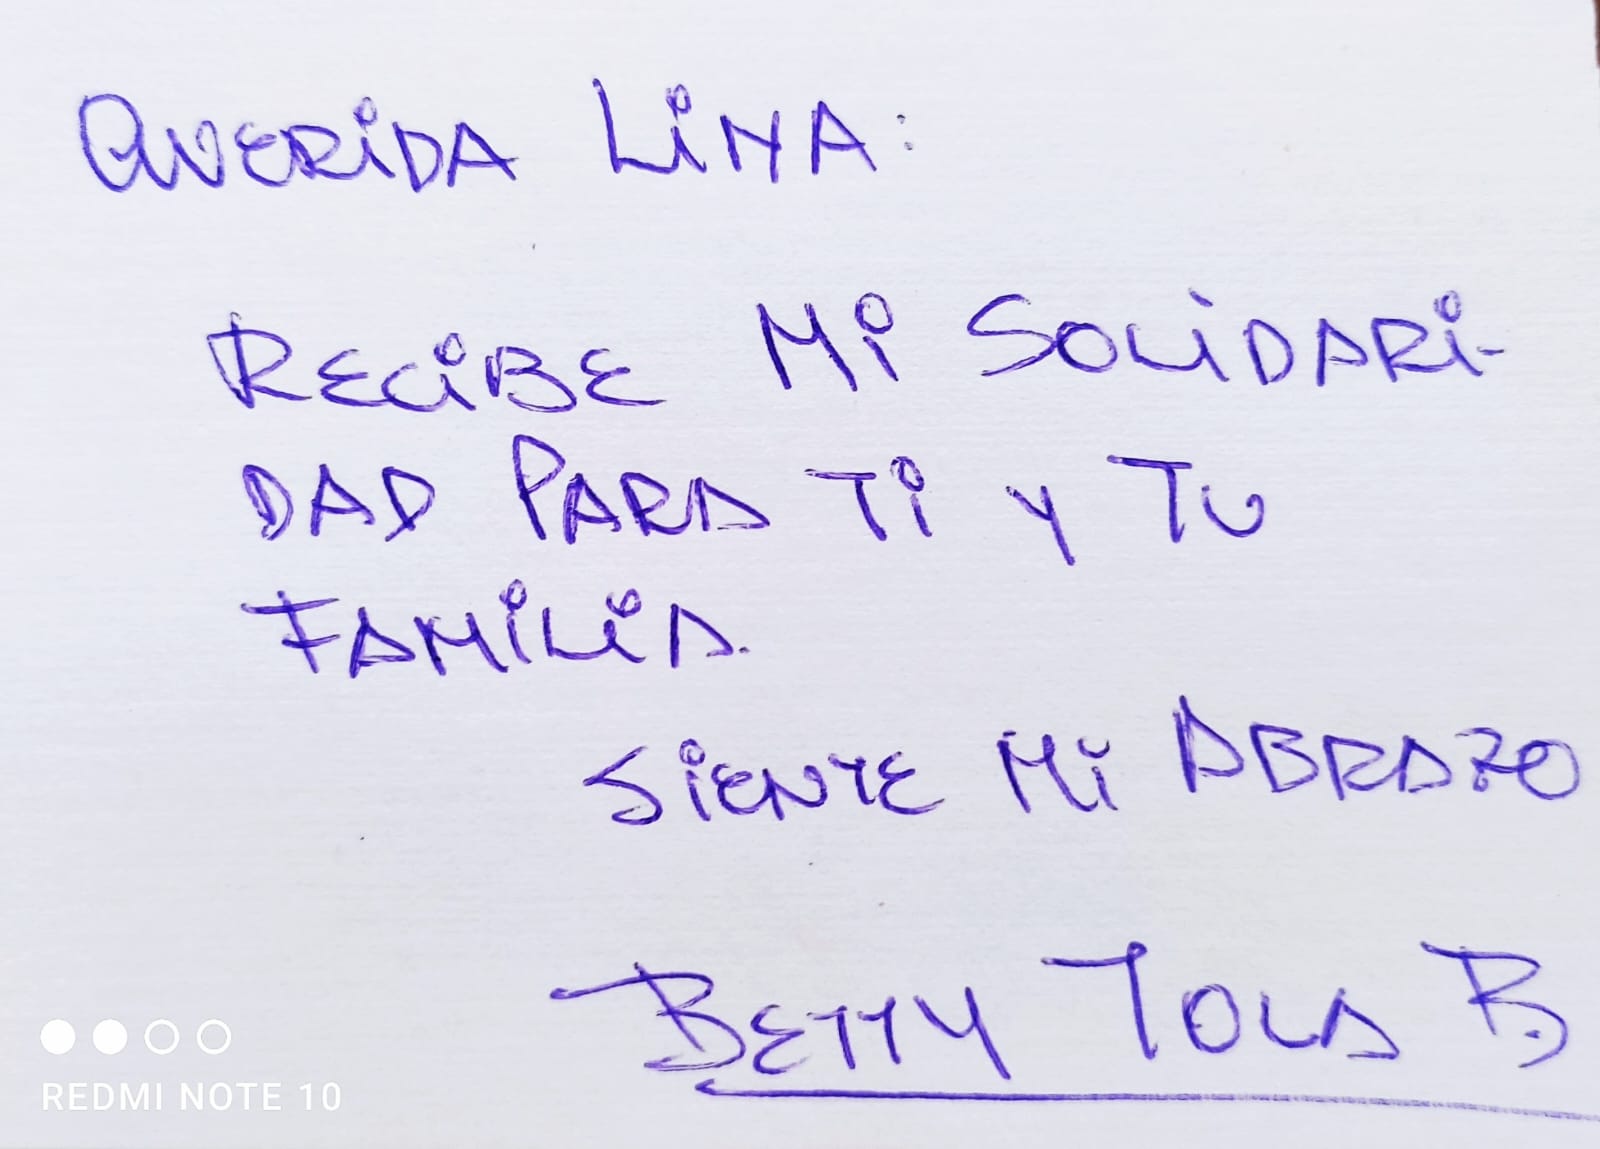 QUERIDA LINA:
RECIBE MI SOLIDARI-
DAD PARA TI Y TU
FAMILIA.
SIENTE MI ABRAZO
BETTY TOLA B.
REDMI NOTE 10